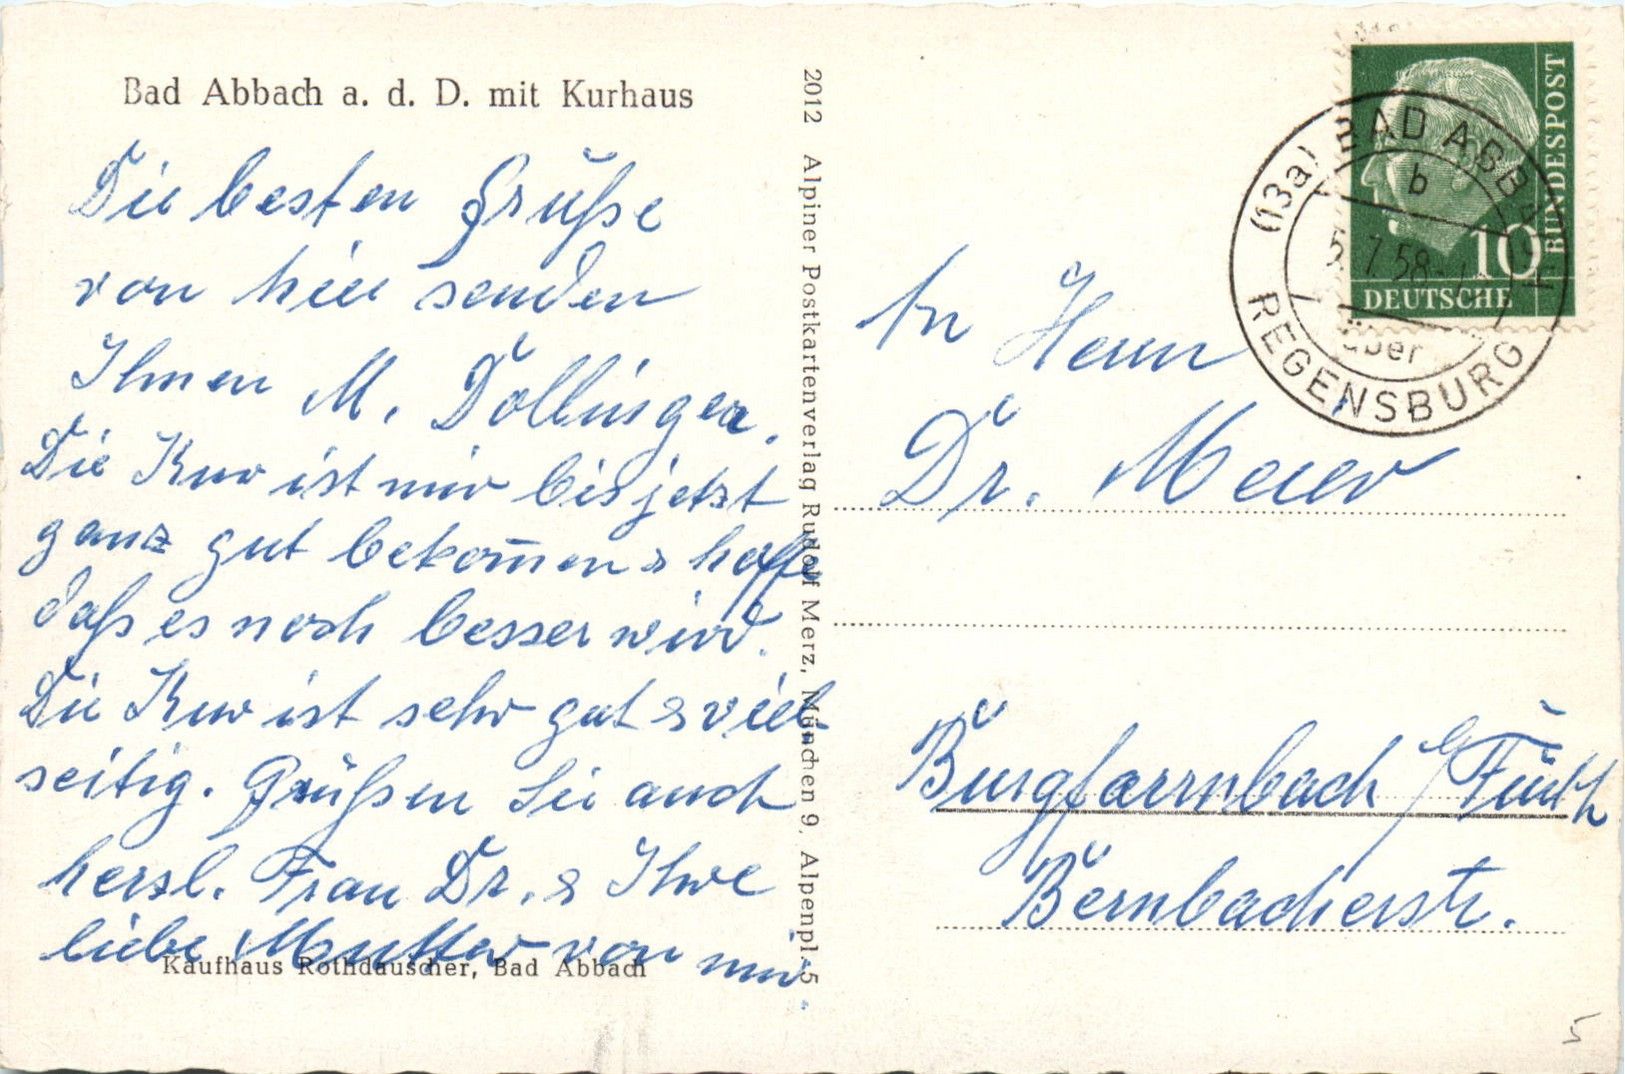 Bad Abbach a. d. D. mit Kurhaus
Die besten Grüße
von hier senden
Ihnen M. Dollinger.
Die Kur ist mir bis jetzt
ganz gut bekom̅en & hoffe
daß es noch besser wird.
Die Kur ist sehr gut & viel-
seitig. Grüßen Sie auch
herzl. Frau Dr. & Ihre
liebe Mutter von mir.
Kaufhaus Rothdauscher, Bad Abbach
2012 Alpiner Postkartenverlag Rudolf Merz, München 9. Alpenpl. 5
(13a) BAD ABBACH
b
5.7.58
über
REGENSBURG
10
DEUTSCHE
BUNDESPOST
An Herrn
Dr. Meier
Burgfarrnbach b/Fürth
Bernbacherstr.
5